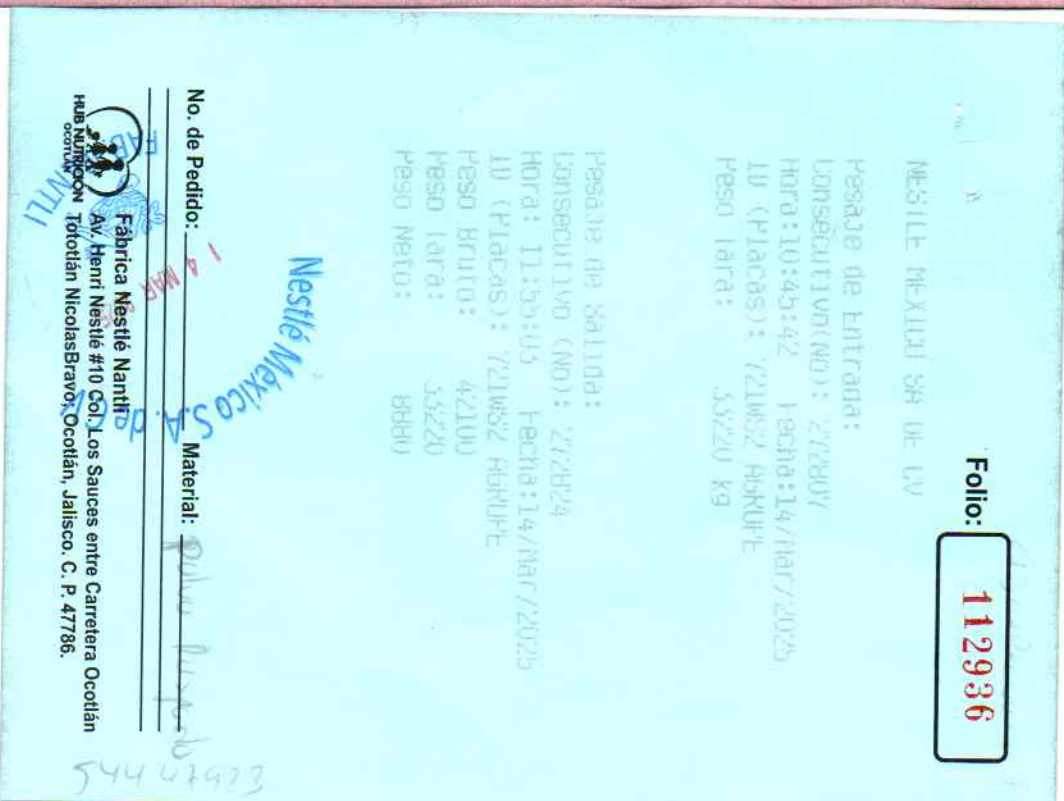 Folio: 112936
NESTLE MEXICO SA DE CV
Pesaje de Entrada:
Consecutivo(No): 272807
Hora:10:45:42 Fecha:14/Mar/2025
ID (Placas): 721WS2 AGRUPE
Peso Tara: 33220 kg
Pesaje de Salida:
Consecutivo (No): 272824
Hora: 11:55:03 Fecha:14/Mar/2025
ID (Placas): 721WS2 AGRUPE
Peso Bruto: 42100
Peso Tara: 33220
Peso Neto: 8880
Nestlé México S.A. de C.V.
14 MAR
No. de Pedido: Material: polvo
54447923
Fábrica Nestlé Nantli
Av. Henri Nestlé #10 Col. Los Sauces entre Carretera Ocotlán
Tototlán NicolasBravo, Ocotlán, Jalisco. C. P. 47786.
HUB NUTRICIÓN
OCOTLÁN
FAB. NTLI